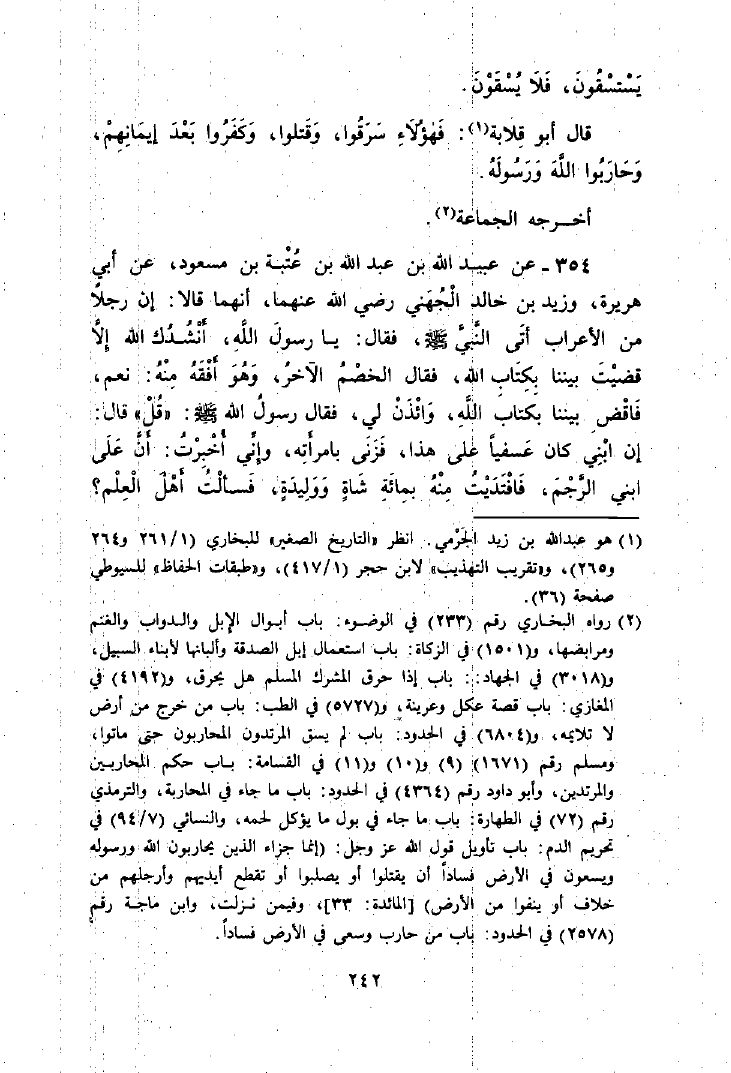 يَسْتَسْقُونَ، فَلَا يُسْقَوْنَ.
قال أبو قِلابة(١): فَهٰؤُلَاءِ سَرَقُوا، وَقَتلوا، وَكَفَرُوا بَعْدَ إيمَانِهِمْ،
وَحَارَبُوا اللَّهَ وَرَسُولَهُ.
أخـرجه الجماعة(٢).
٣٥٤ ـ عن عبيد الله بن عبد الله بن عُتْبة بن مسعود، عن أبي
هريرة، وزيد بن خالد الْجُهَني رضي الله عنهما، أنهما قالا: إن رجلاً
من الأعراب أتَى النَّبيَّ ﷺ، فقال: يـا رسولَ اللَّهِ، أَنْشُدُك الله إلَّا
قضيْتَ بيننا بِكتَابِ الله، فقال الخصْمُ الآخرُ، وَهُوَ أَفْقَهُ مِنْهُ: نعم،
فَاقْضِ بيننا بكتاب اللَّهِ، وَائْذَنْ لي، فقال رسولُ الله ﷺ: «قُلْ» قال:
إن ابْنِي كان عَسفياً عَلى هذا، فَزَنَى بامرأتِه، وإنِّي أُخْبِرْتُ: أنَّ عَلَى
ابني الرَّجْمَ، فَافْتَدَيْتُ مِنْهُ بمائَةِ شَاةٍ وَوَلِيدَةٍ، فَسألْتُ أهْلَ الْعِلْم؟
(١) هو عبدالله بن زيد الجَرْمي. انظر «التاريخ الصغير» للبخاري (٢٦١/١ و٢٦٤
و٢٦٥)، و«تقريب التهذيب» لابن حجر (٤١٧/١)، و«طبقات الحفاظ» للسيوطي
صفحة (٣٦).
(٢) رواه البخاري رقم (٢٣٣) في الوضوء: باب أبوال الإبل والدواب والغنم
ومرابضها، و(١٥٠١) في الزكاة: باب استعمال إبل الصدقة وألبانها لأبناء السبيل،
و(٣٠١٨) في الجهاد: باب إذا حرق المشرك المسلم هل يحرق، و(٤١٩٢) في
المغازي: باب قصة عكل وعرينة، و(٥٧٢٧) في الطب: باب من خرج من أرض
لا تلايمه، و(٦٨٠٤) في الحدود: باب لم يسق المرتدون المحاربون حتى ماتوا،
ومسلم رقم (١٦٧١) (٩) و(١٠) و(١١) في القسامة: بـاب حكم المحاربين
والمرتدين، وأبو داود رقم (٤٣٦٤) في الحدود: باب ما جاء في المحاربة، والترمذي
رقم (٧٢) في الطهارة: باب ما جاء في بول ما يؤكل لحمه، والنسائي (٩٤/٧) في
تحريم الدم: باب تأويل قول الله عز وجل: (إنما جزاء الذين يحاربون الله ورسوله
ويسعون في الأرض فساداً أن يقتلوا أو يصلبوا أو تقطع أيديهم وأرجلهم من
خلاف أو ينفوا من الأرض) [المائدة: ٣٣]، وفيمن نـزلت، وابن ماجـة رقم
(٢٥٧٨) في الحدود: باب من حارب وسعى في الأرض فساداً.
٢٤٢